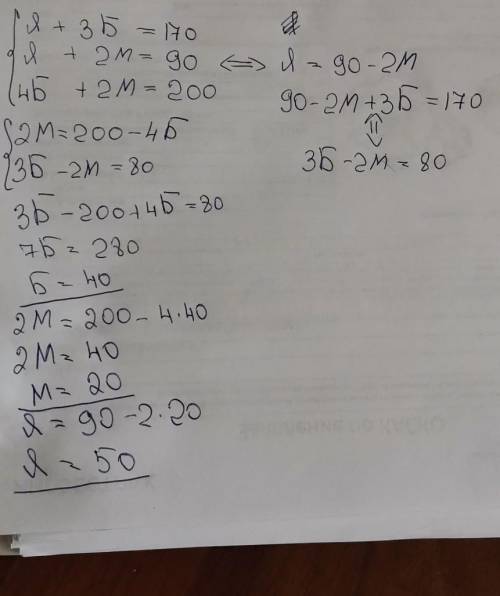 Я + 3Б = 170
Я + 2М = 90
4Б + 2М = 200
⟺ Я = 90 - 2М
90 - 2М + 3Б = 170
⇕
3Б - 2М = 80
2М = 200 - 4Б
3Б - 2М = 80
3Б - 200 + 4Б = 80
7Б = 280
Б = 40
2М = 200 - 4·40
2М = 40
М = 20
Я = 90 - 2·20
Я = 50